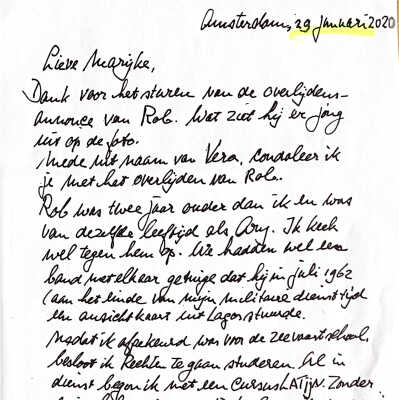 Amsterdam, 29 januari 2020
Lieve Marijke,
Dank voor het sturen van de overlijdens-
annonce van Rob. Wat ziet hij er jong
uit op de foto.
Mede uit naam van Vera, condoleer ik
je met het overlijden van Rob.
Rob was twee jaar ouder dan ik en was
van dezelfde leeftijd als Ary. Ik keek
wel tegen hem op. We hadden wel een
band met elkaar getuige dat hij in juli 1962
(aan het einde van mijn militaire diensttijd
een ansichtkaart uit Lagos stuurde.
Nadat ik afgekeurd was voor de zeevaartschool,
besloot ik Rechten te gaan studeren. Al in
dienst begon ik met een cursus LATIJN. Zonder